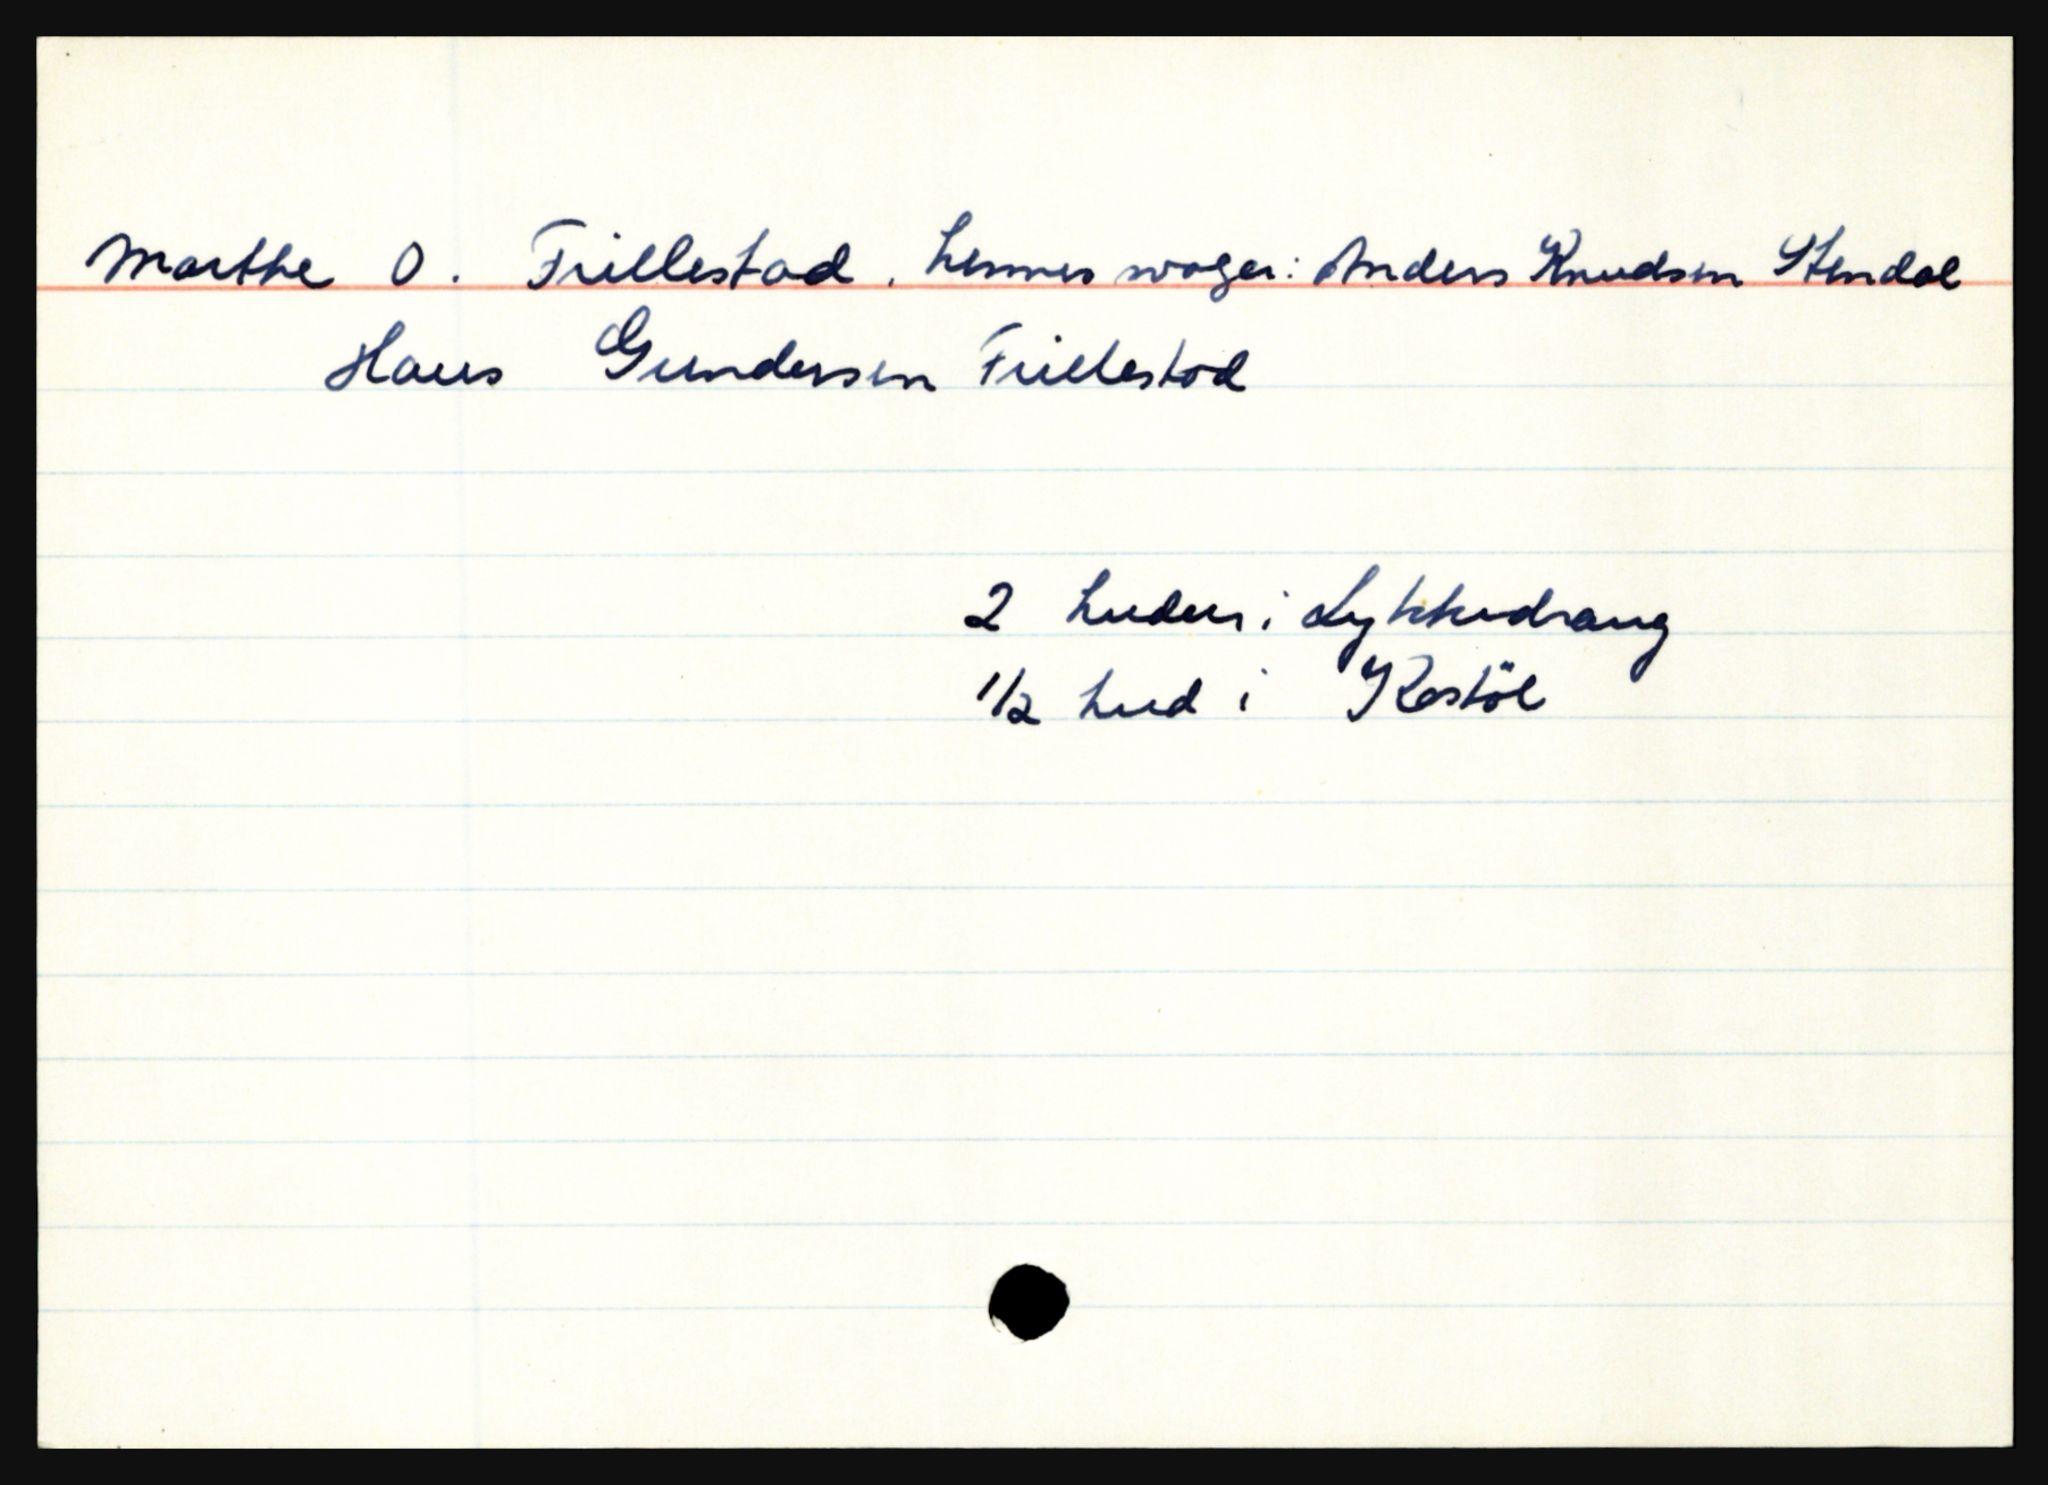 Marthe O. Frillestad. hennes svoger: Anders Knudsen Stendal
Hans Gundersen Frillestad
2 huder i Lykkedrang
1/2 hud i Kostöl